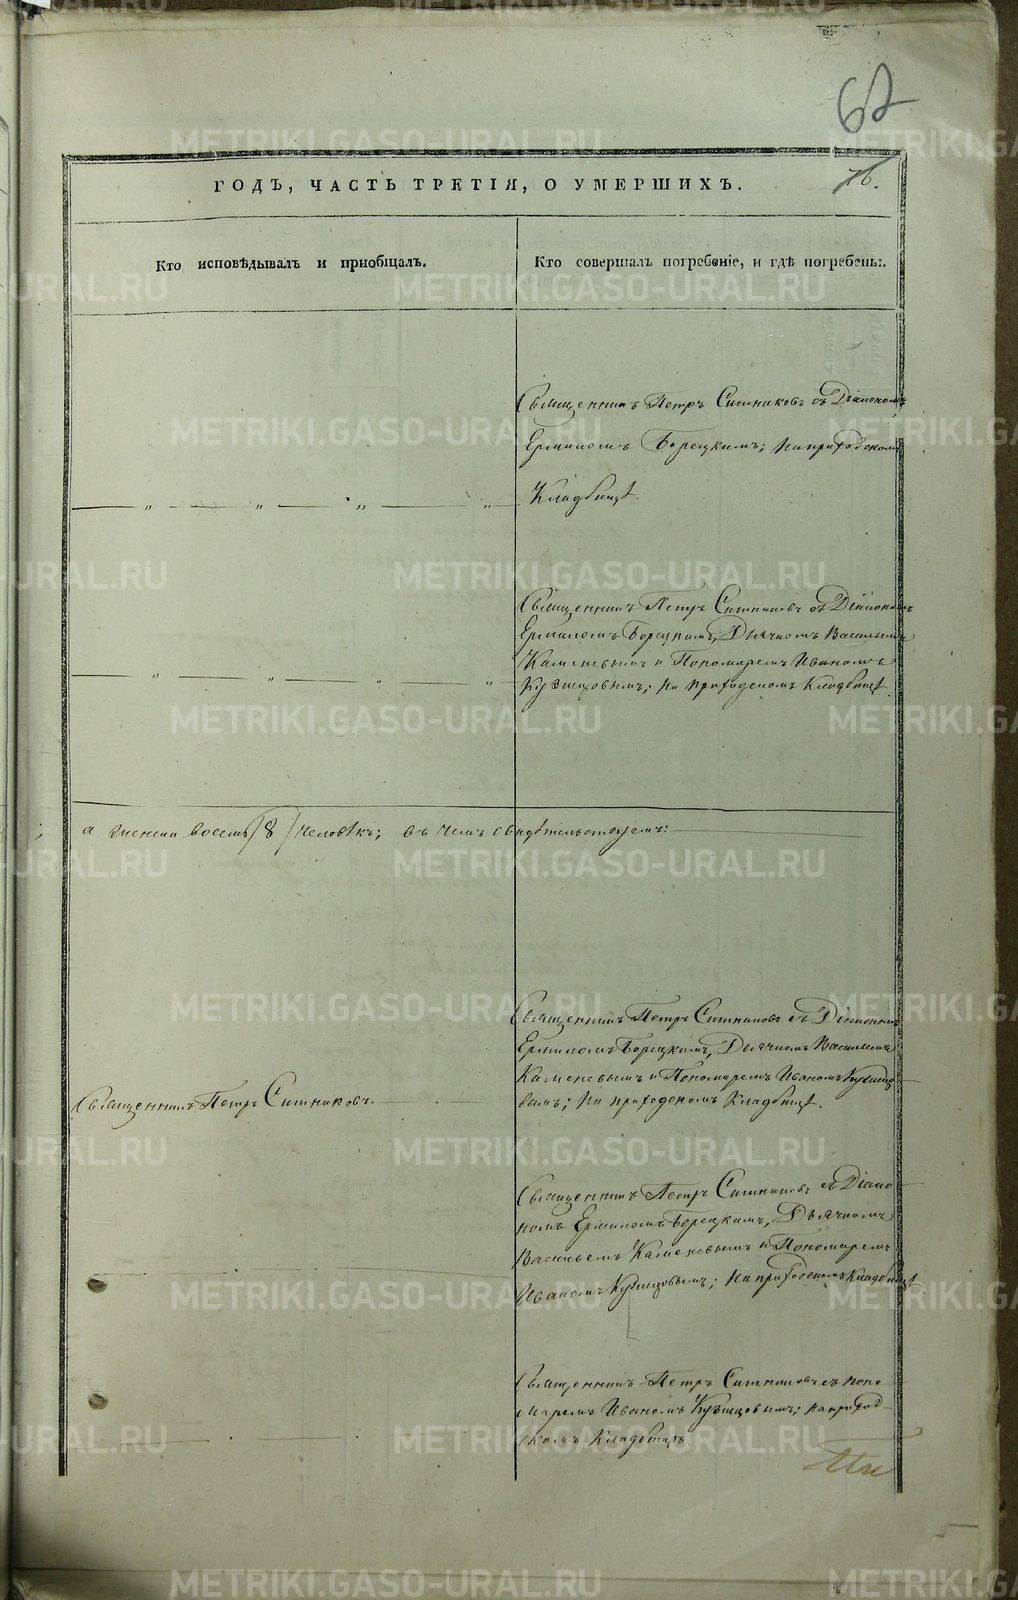 62
76.
ГОДЪ, ЧАСТЬ ТРЕТІЯ, О УМЕРШИХЪ.
Кто исповѣдывалъ и приобщалъ.
Кто совершалъ погребеніе, и гдѣ погребены.
Священникъ Петръ Ситниковъ съ Діакономъ
Ермиломъ Борецкимъ; на приходскомъ
Кладбищѣ.
Священникъ Петръ Ситниковъ съ Діакономъ
Ермиломъ Борецкимъ, Дьячкомъ Васильемъ
Каменевымъ и Пономаремъ Иваномъ
Кузнецовымъ; на приходскомъ Кладбищѣ.
а женска восемь /8/ человѣкъ; въ чемъ свидѣтельствуемъ:
Священникъ Петръ Ситниковъ.
Священникъ Петръ Ситниковъ съ Діакономъ
Ермиломъ Борецкимъ, Дьячкомъ Васильемъ
Каменевымъ и Пономаремъ Иваномъ Кузнецо-
вымъ; на приходскомъ Кладбищѣ.
Священникъ Петръ Ситниковъ съ Діако-
номъ Ермиломъ Борецкимъ, Дьячкомъ
Васильемъ Каменевымъ и Пономаремъ
Иваномъ Кузнецовымъ; на приходскомъ Кладбищѣ
Священникъ Петръ Ситниковъ съ поно-
маремъ Иваномъ Кузнецовымъ; на приход-
скомъ Кладбищѣ.
METRIKI.GASO-URAL.RU